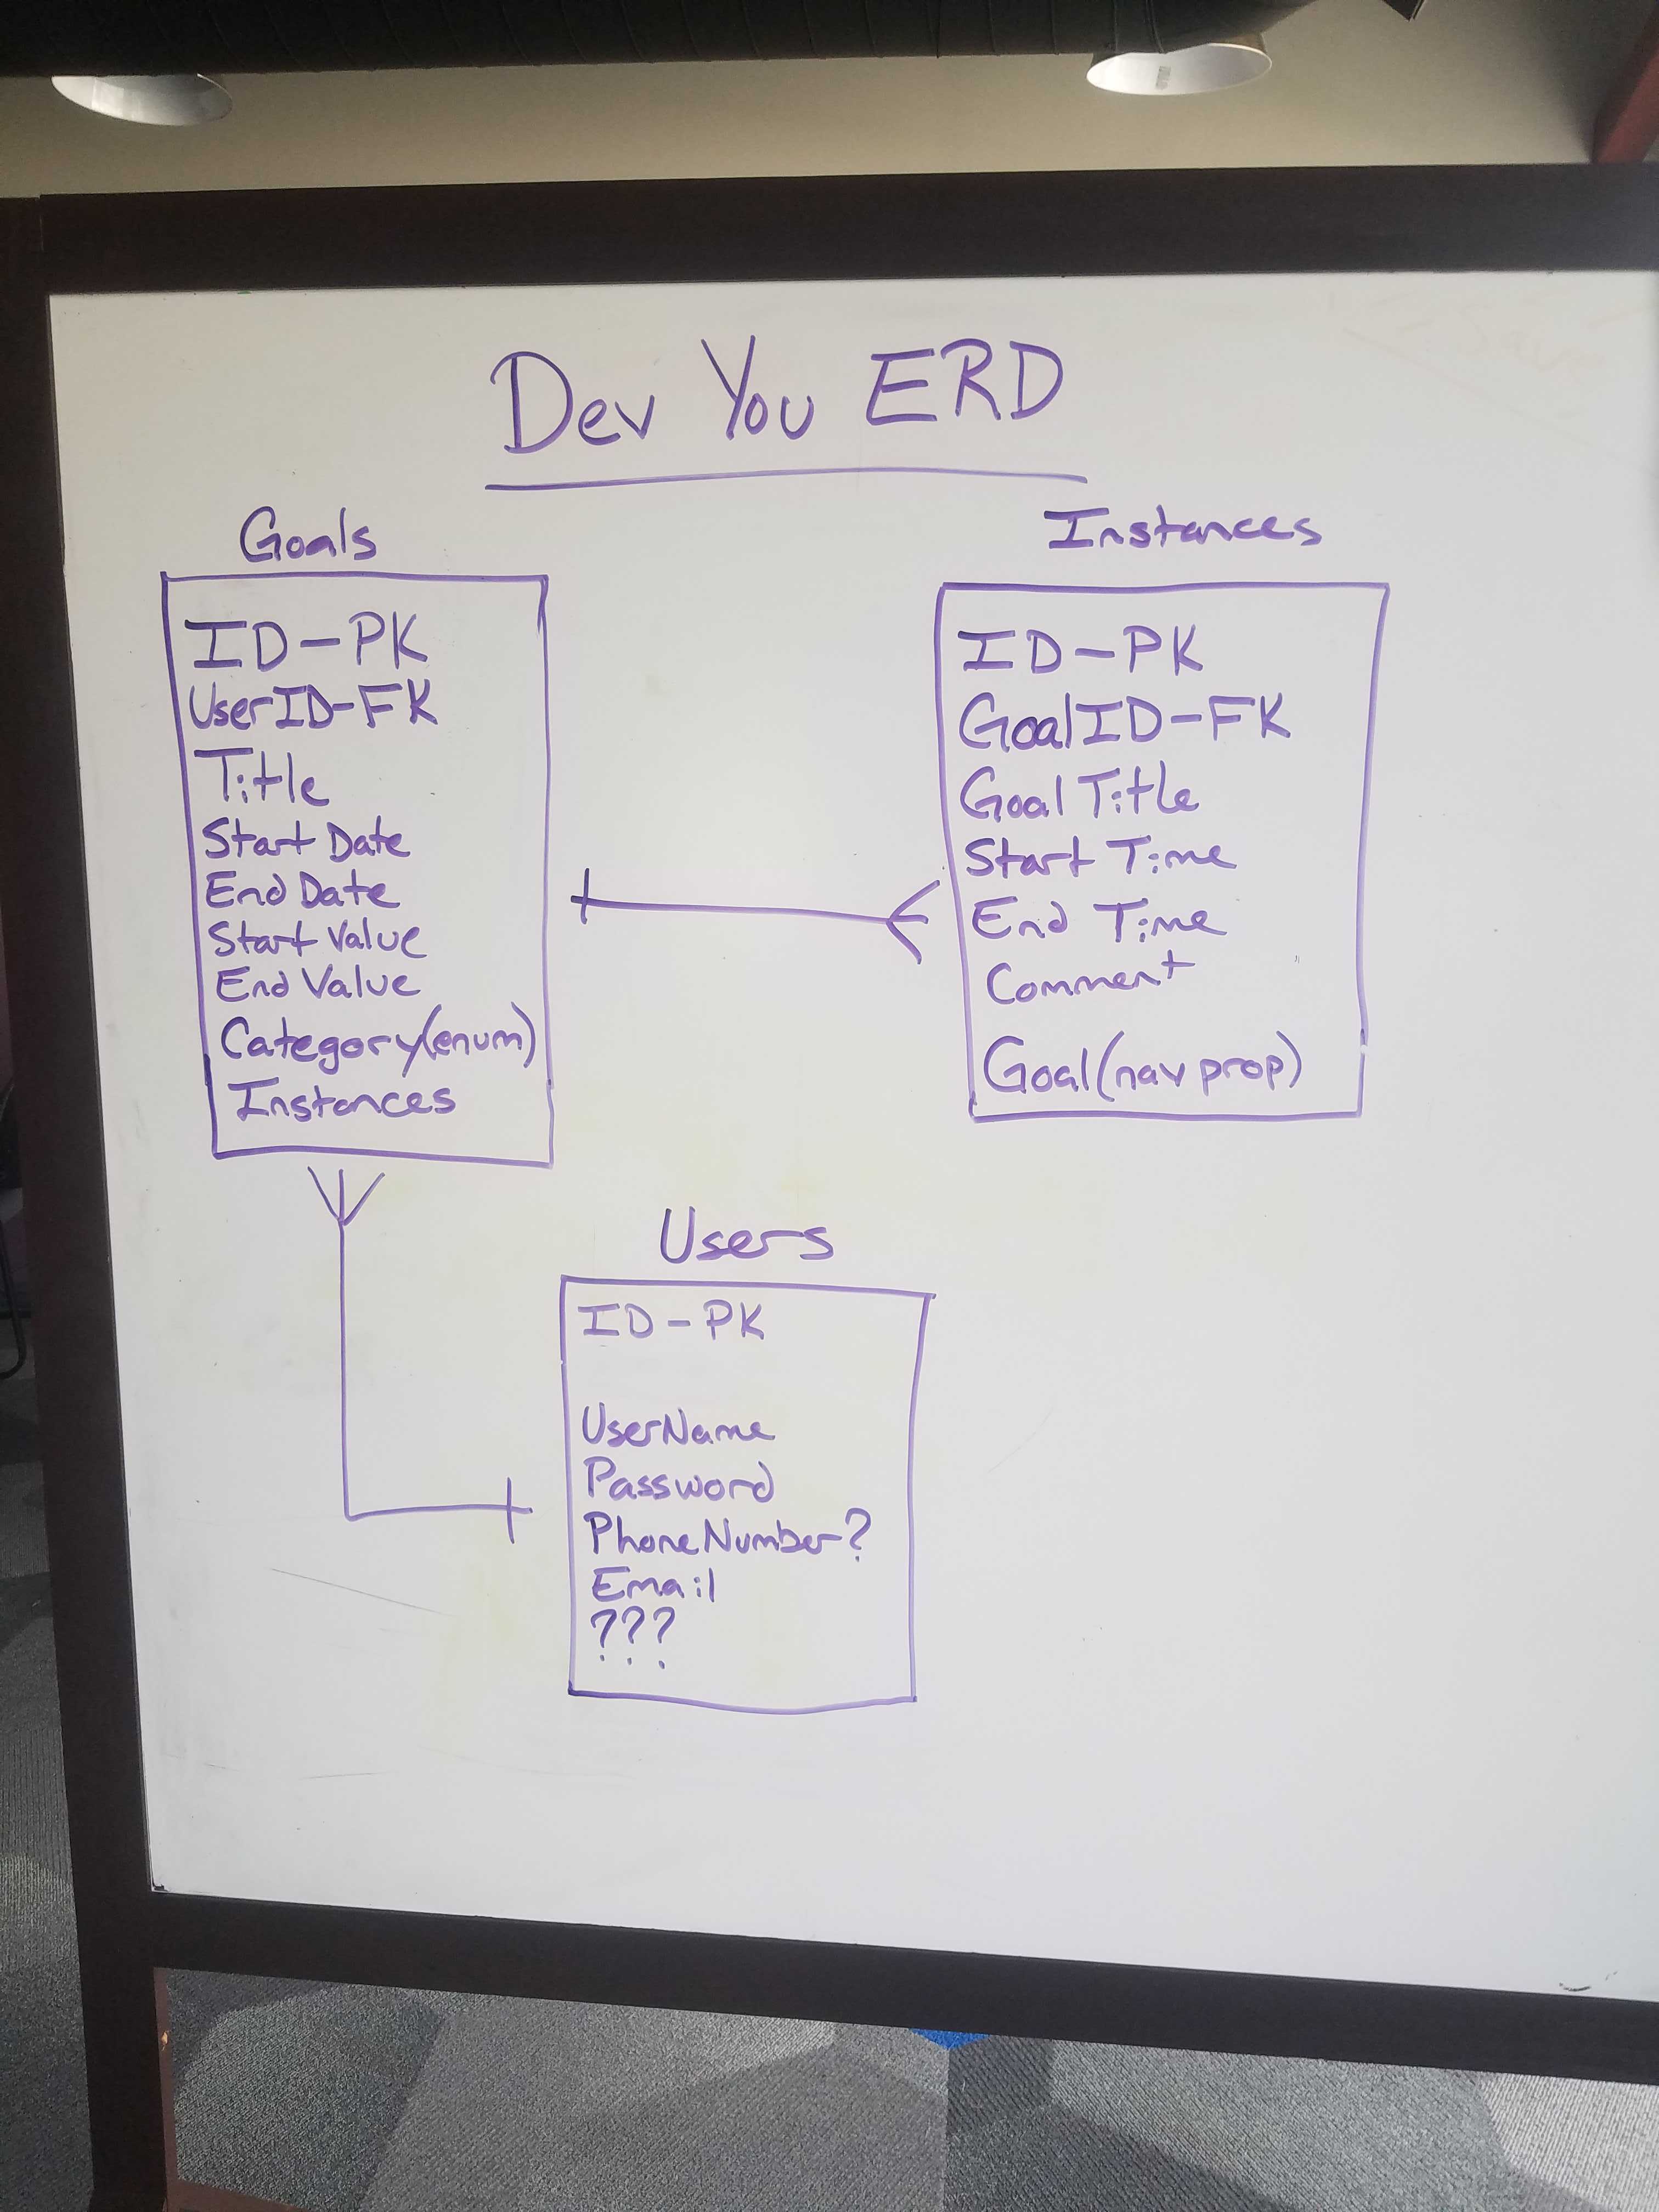 Dev You ERD
Goals
ID-PK
UserID-FK
Title
Start Date
End Date
Start Value
End Value
Category(enum)
Instances
Instances
ID-PK
GoalID-FK
Goal Title
Start Time
End Time
Comment
Goal(nav prop)
Users
ID-PK
UserName
Password
PhoneNumber?
Email
???